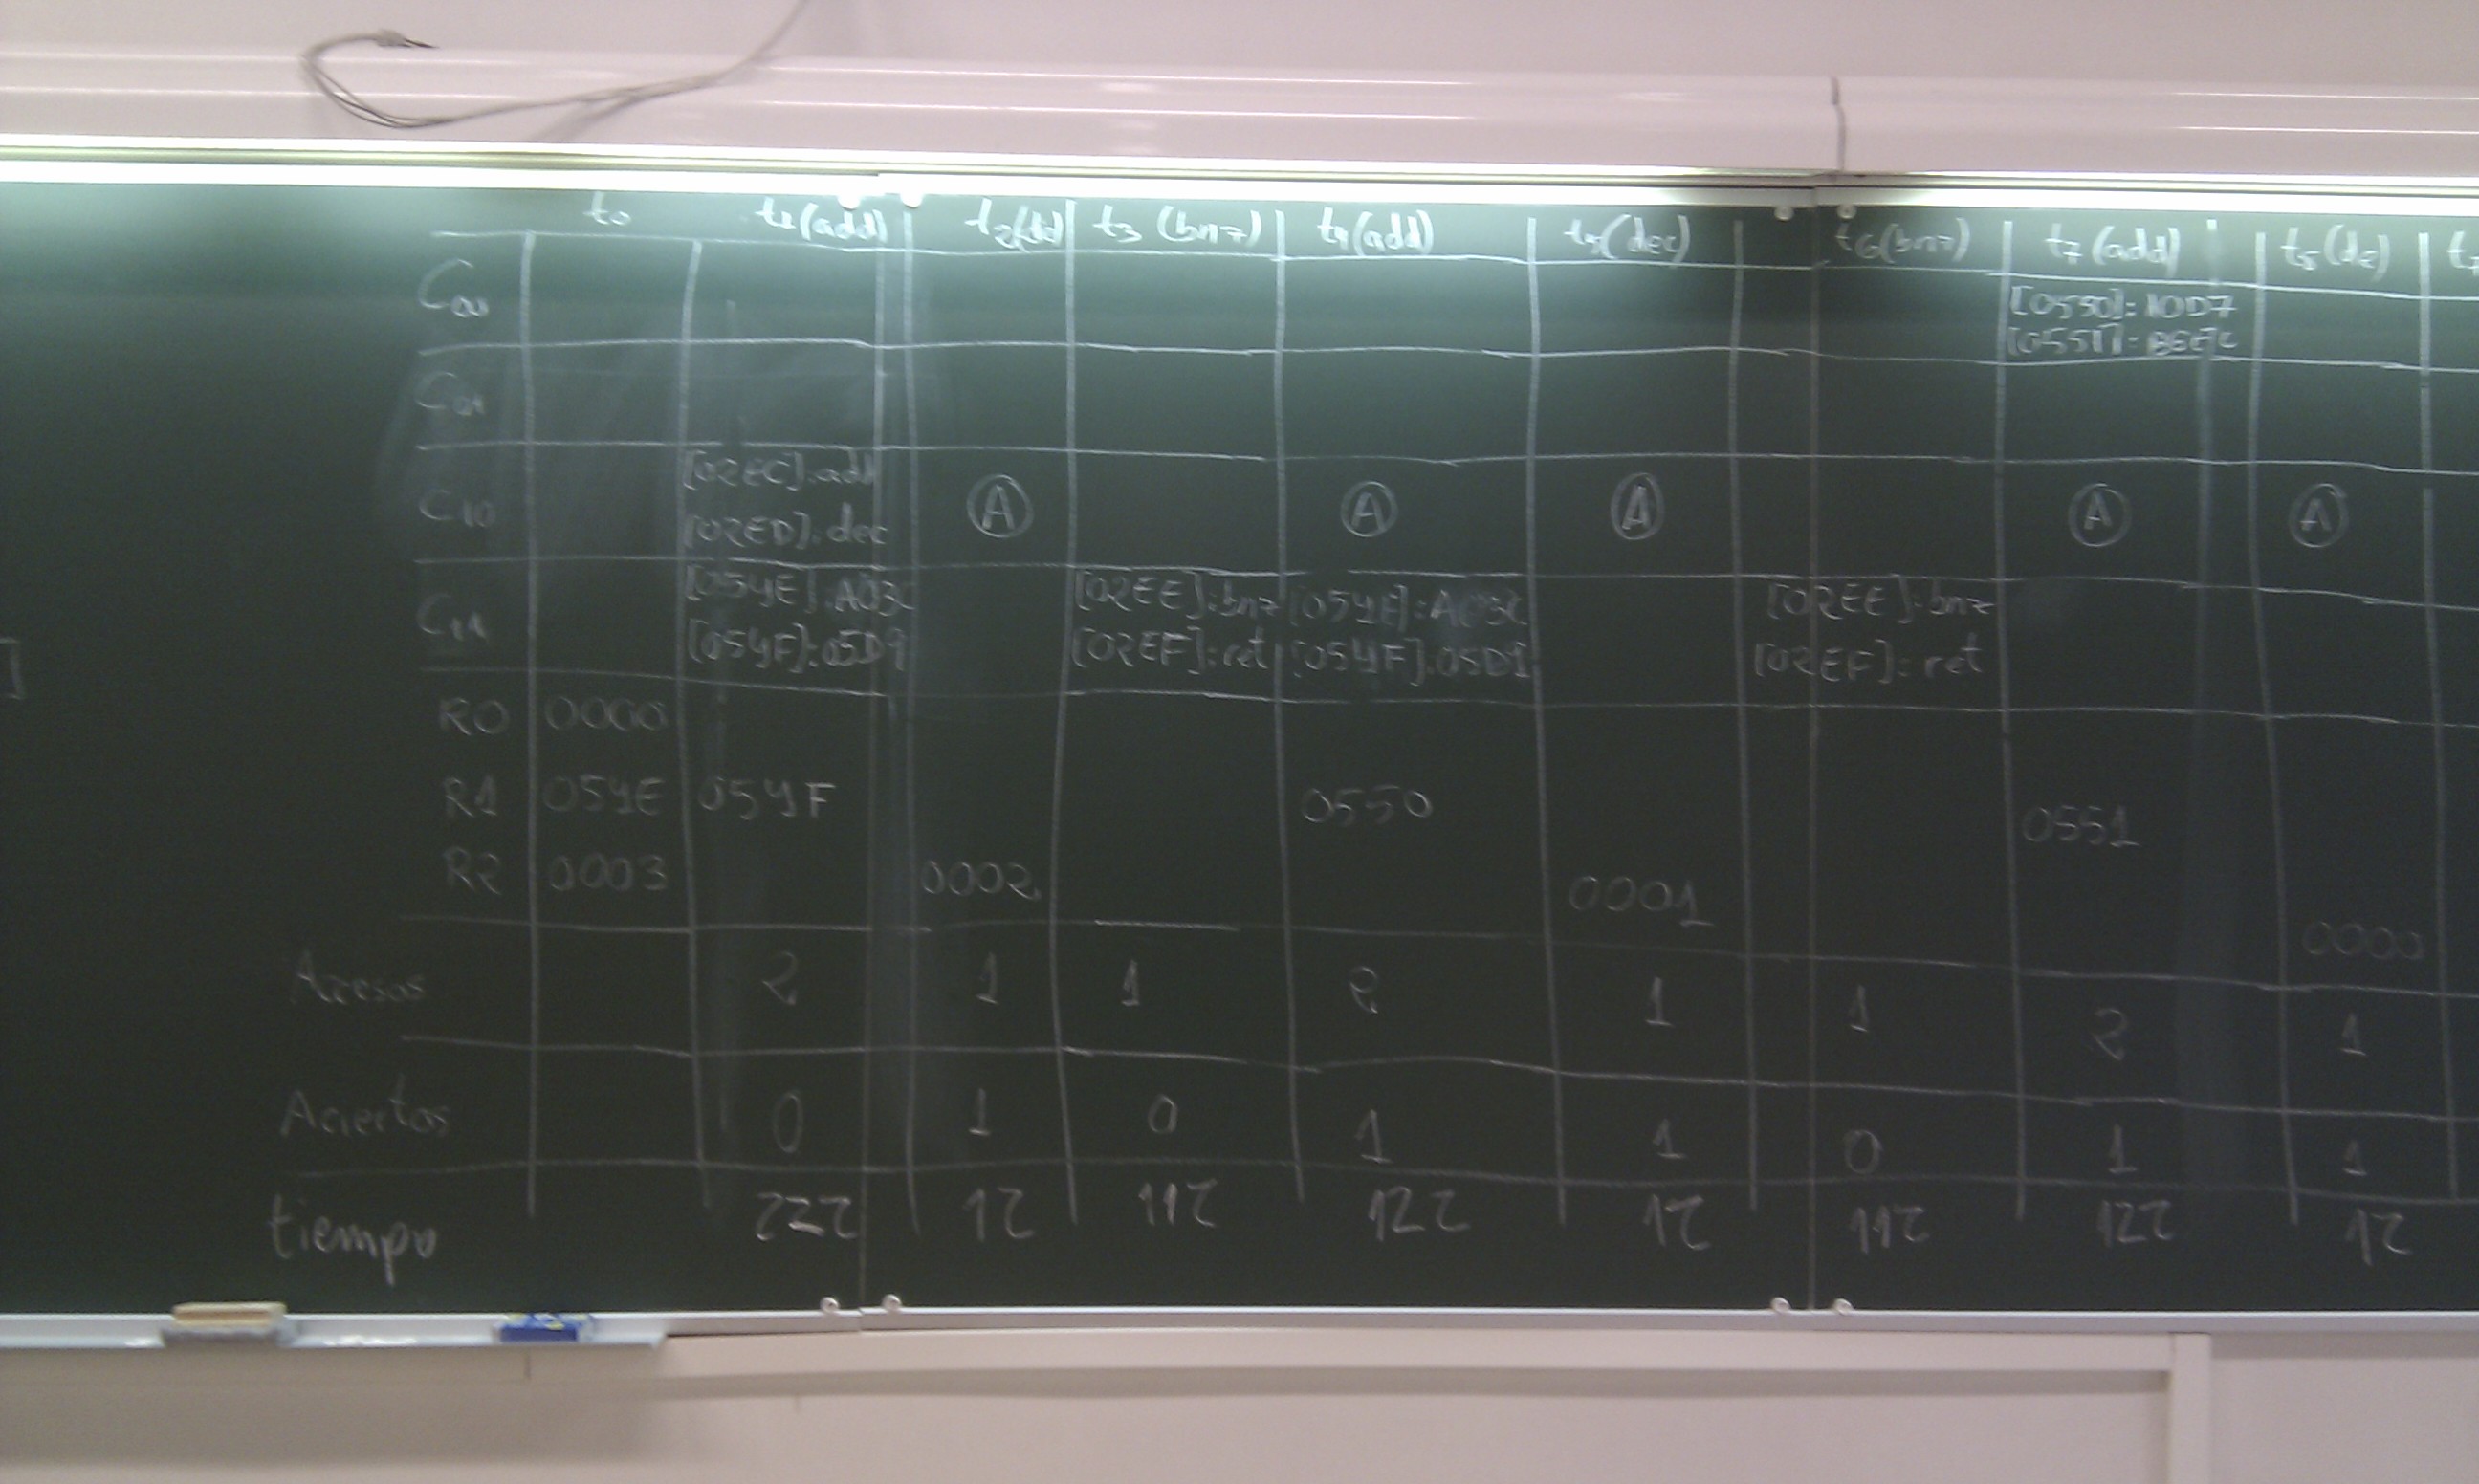 t0 t1(add) t2(dd) t3 (bnz) t4(add) t5(dec) t6(bnz) t7(add) t8(de)
C00 [0550]: 10D7
[0551]:
C01
C10 [02EC]:add
[02ED]:dec A A A A A
C11 [054E]:A03C [02EE]:bnz [054E]:A03C [02EE]:bnz
[054F]:05D9 [02EF]:ret [054F]:05D9 [02EF]:ret
R0 0000
R1 054E 054F 0550 0551
R2 0003 0002 0001 0000
Accesos 2 1 1 2 1 1 2 1
Aciertos 0 1 0 1 1 0 1 1
tiempo 22τ 1τ 11τ 12τ 1τ 11τ 12τ 1τ